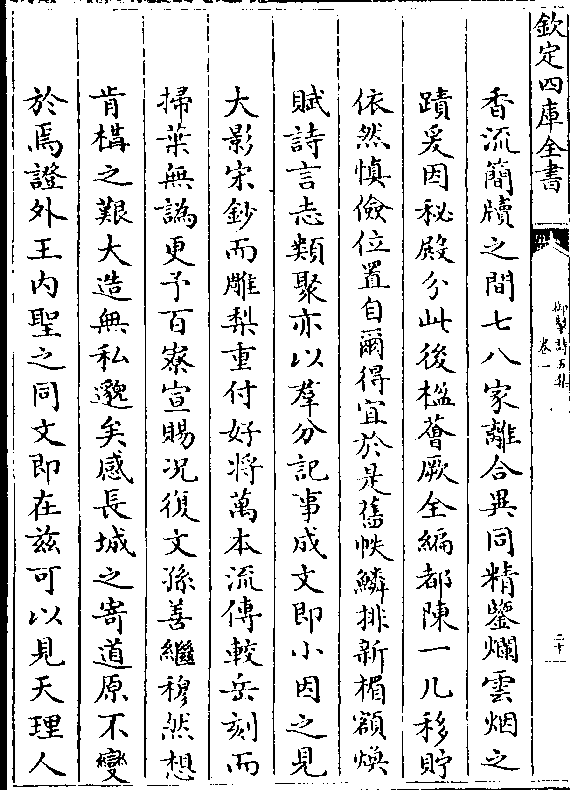 欽定四庫全書
御製詩五集
卷一
二十
香流簡牘之間七八家離合異同精鑒爛雲烟之
蹟爰因秘殿分此後楹薈厥全編都陳一几移貯
依然慎儉位置自爾得宜於是舊帙鱗排新楣額煥
賦詩言志類聚亦以羣分記事成文即小因之見
大影宋鈔而雕梨重付好將萬本流傳較岳刻而
掃葉無譌更予百寮宣賜况復文孫善繼穆然想
肯構之艱大造無私邈矣感長城之寄道原不變
於焉證外王内聖之同文即在兹可以見天理人